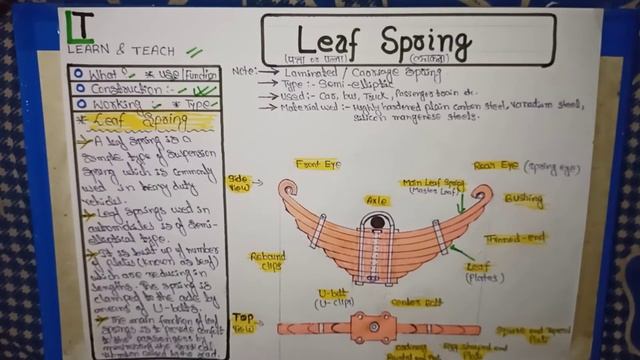 LT
LEARN & TEACH
Leaf Spring
(पत्ता या पत्ती) (कमानी)
What? * Use / Function
Construction :-
Working :- * Type
* Leaf Spring
→ A leaf spring is a
simple type of suspension
spring which is commonly
used in heavy duty
vehicle.
→ Leaf springs used in
automobiles is of semi-
elliptical type.
→ It is built up of number
of plates (known as leaf)
which are reducing in
lengths. The spring is
clamped to the axle by
means of U-bolts.
→ The main function of leaf
springs is to provide comfort
to the passengers by
minimizing the vertical
vibration caused by the road.
Note:→ Laminated / Carriage Spring
→ Type:- Semi-elliptic
→ Used:- Car, bus, Truck, Passenger train etc.
→ Material used:- highly hardened plain carbon steel, vanadium steels,
silicon manganese steels.
Side View
Front Eye
Axle
Main Leaf Spring
(Master Leaf)
Rear Eye (Spring eye)
Bushing
Thinned-end
Rebound
clips
Leaf
(Plates)
U-bolt
(U-clips)
Center Bolt
Top
View
Square and Tapered
Flat
Egg shaped and
Flat